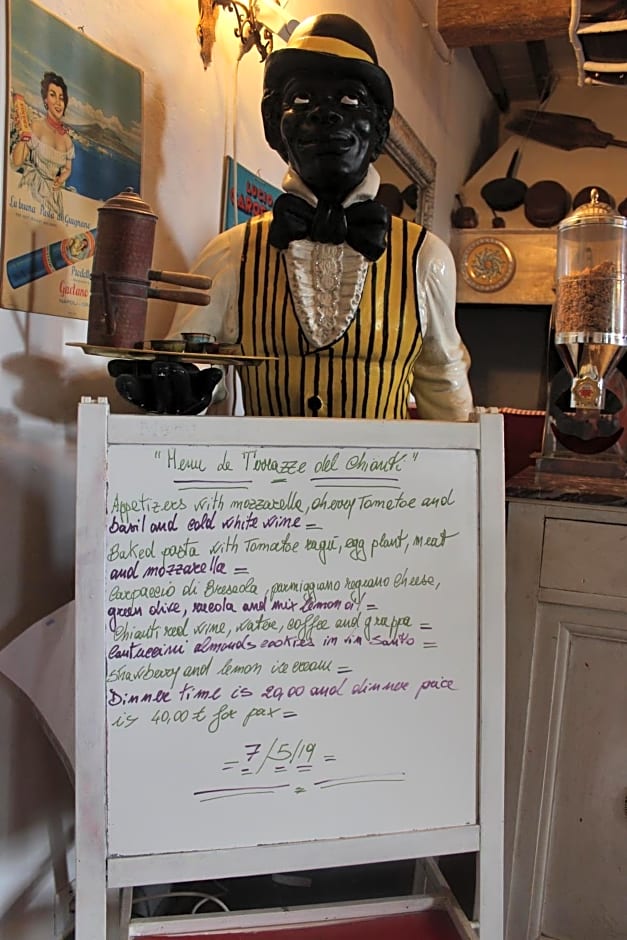 "Menu de Terrazze del Chianti"
Appetizers with mozzarella, cherry Tomatoe and
basil and cold white wine =
Baked pasta with Tomatoe ragù, egg plant, meat
and mozzarella =
Carpaccio di Bresaola, parmiggiano regiano cheese,
green olive, rucola and mix lemon oil =
Chianti red wine, water, coffee and grappa =
Cantuccini almonds cookies in vin Santo =
Strawberry and lemon ice cream =
Dinner time is 20,00 and dinner price
is 40,00 € for pax =
= 7/5/19 =
La buona Pasta di Gragnano
Gaetano
NAPOLI